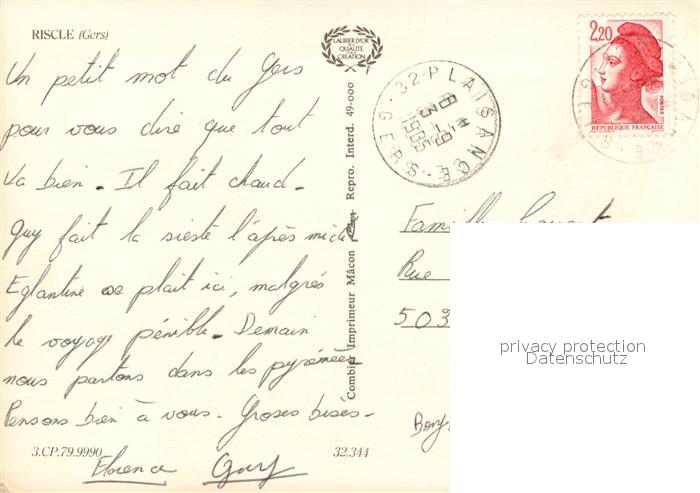 RISCLE (Gers)
LAURIER D'OR
DE LA
QUALITE
CREATION
Un petit mot du Gers
pour vous dire que tout
va bien. Il fait chaud.
Guy fait la sieste l'après midi
Eglantine se plait ici, malgrés
le voyage pénible. Demain
nous partons dans les pyrénées
Pensons bien à vous. Groses bises.
Florence Guy
3.CP.79.9990
32.344
Combier Imprimeur Mâcon Repro. Interd. 49-000
32-PLAISANCE
1985
GERS
2,20
POSTES
REPUBLIQUE FRANÇAISE
Famille
Rue
503
privacy protection
Datenschutz